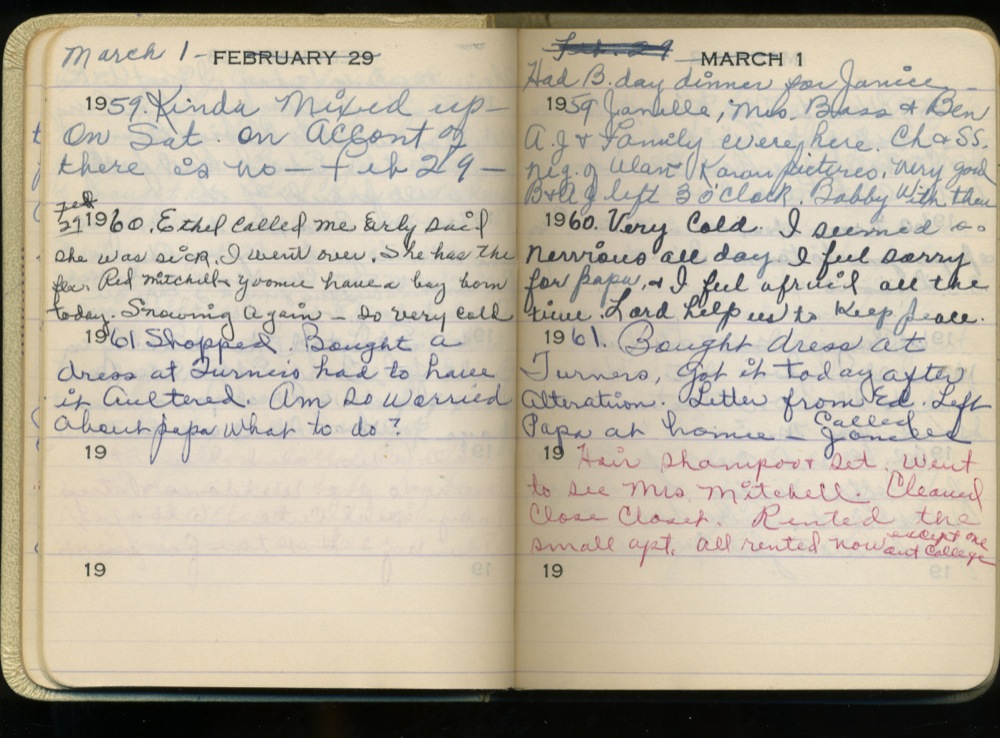 March 1 - FEBRUARY 29
1959. Kinda Mixed up -
On Sat. on Accont of
there is no - Feb 29 -
Feb
29 1960. Ethel called me Erly said
she was sick. I went over. She has the
flu. Red Mitchell & Yvonnie have a boy born
today. Snowing Again - So very cold
1961 Shopped. Bought a
dress at Turners had to have
it Aultered. Am so worried
about papa what to do?
19
19
Feb. 29 MARCH 1
Had B.day dinner for Janice -
1959 Janelle, Mrs. Bass & Ben
A.J & Family were here. Ch & SS.
neg. of Alan & Karan pictures, very good
B & AJ left 3 o'clock. Bobby with them
1960. Very Cold. I seemed so
nervious all day I feel sorry
for papa, & I feel afraid all the
time. Lord help us to Keep peace.
1961. Bought dress at
Turners, Got it today after
alteration. Letter from Ed. Left
Papa at home - Called
19 Hair shampoo & set. Went
to see Mrs. Mitchell. Cleaned
Close Closet. Rented the
small apt. all rented now except one
out College
19